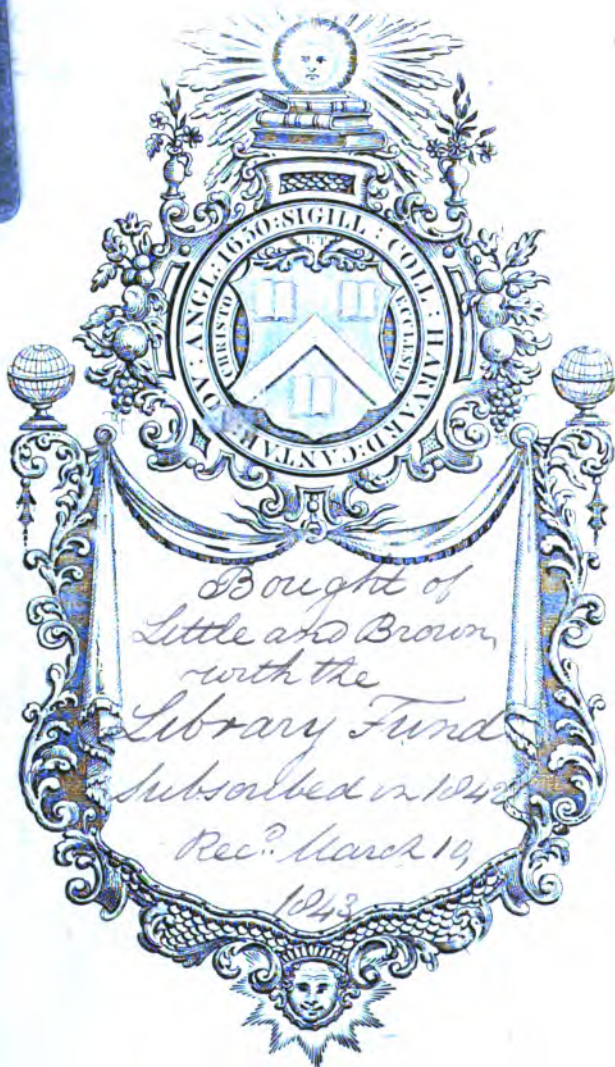 SIGILL : COLL : HARVARD : CANTAB OV : ANGL : 1650 :
CHRISTO ECCLESIÆ
Bought of
Little and Brown,
with the
Library Fund
subscribed in 1842
Rec.d March 10,
1843